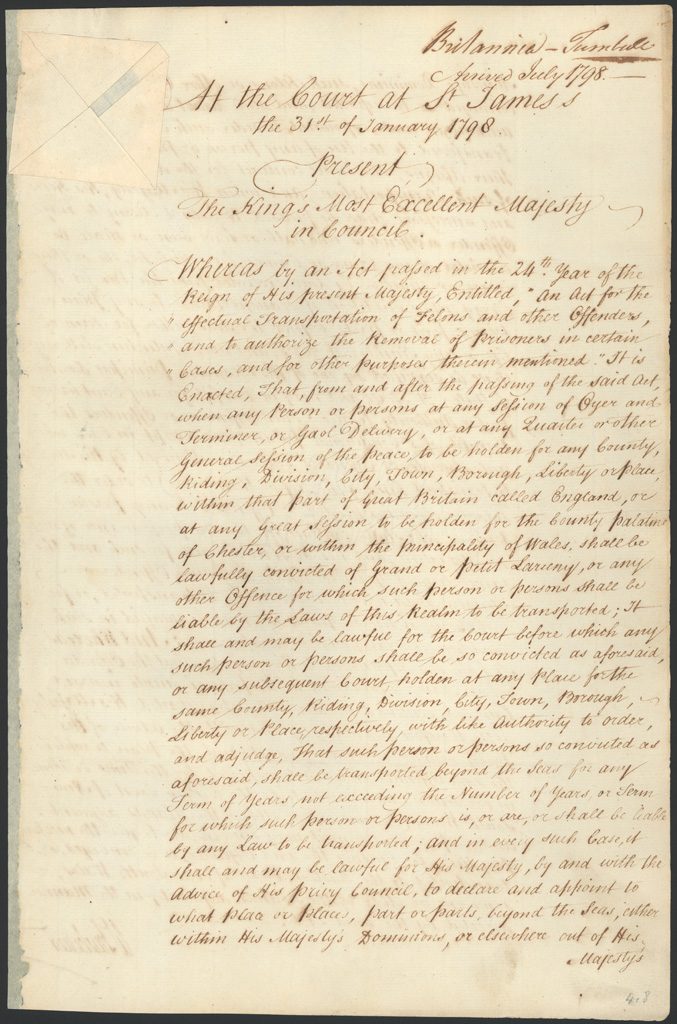 Britannia – Turnbull
Arrived July 1798. —
At the Court at St. James's
the 31st. of January 1798.
Present
The King's Most Excellent Majesty
in Council.
Whereas by an Act passed in the 24th. Year of the
Reign of His present Majesty, Entitled, "An Act for the
"effectual Transportation of Felons and other Offenders,
" and to authorize the Removal of prisoners in certain
" Cases, and for other purposes therein mentioned." It is
Enacted, That, from and after the passing of the said Act,
when any Person or persons at any Session of Oyer and
Terminer, or Gaol Delivery, or at any Quarter or other
General Session of the peace, to be holden for any County,
Riding, Division, City, Town, Borough, Liberty or Place,
within that part of Great Britain called England, or
at any Great Session to be holden for the County palatine
of Chester, or within the principality of Wales, shall be
lawfully convicted of Grand or petit Larceny, or any
other Offence for which such person or persons shall be
liable by the Laws of this Realm to be transported; It
shall and may be lawful for the Court before which any
such person or persons shall be so convicted as aforesaid,
or any subsequent Court, holden at any Place for the
same County, Riding, Division, City, Town, Borough,
Liberty or Place, respectively, with like Authority to order,
and adjudge, That such person or persons so convicted as
aforesaid, shall be transported beyond the Seas for any
Term of Years not exceeding the Number of Years, or Term
for which such person or persons is, or are, or shall be liable
by any Law to be transported; and in every such Case, it
shall and may be lawful for His Majesty, by and with the
Advice of His privy Council, to declare and appoint to
what place or places, part or parts, beyond the Seas, either
within His Majesty's Dominions, or elsewhere out of His
Majesty's